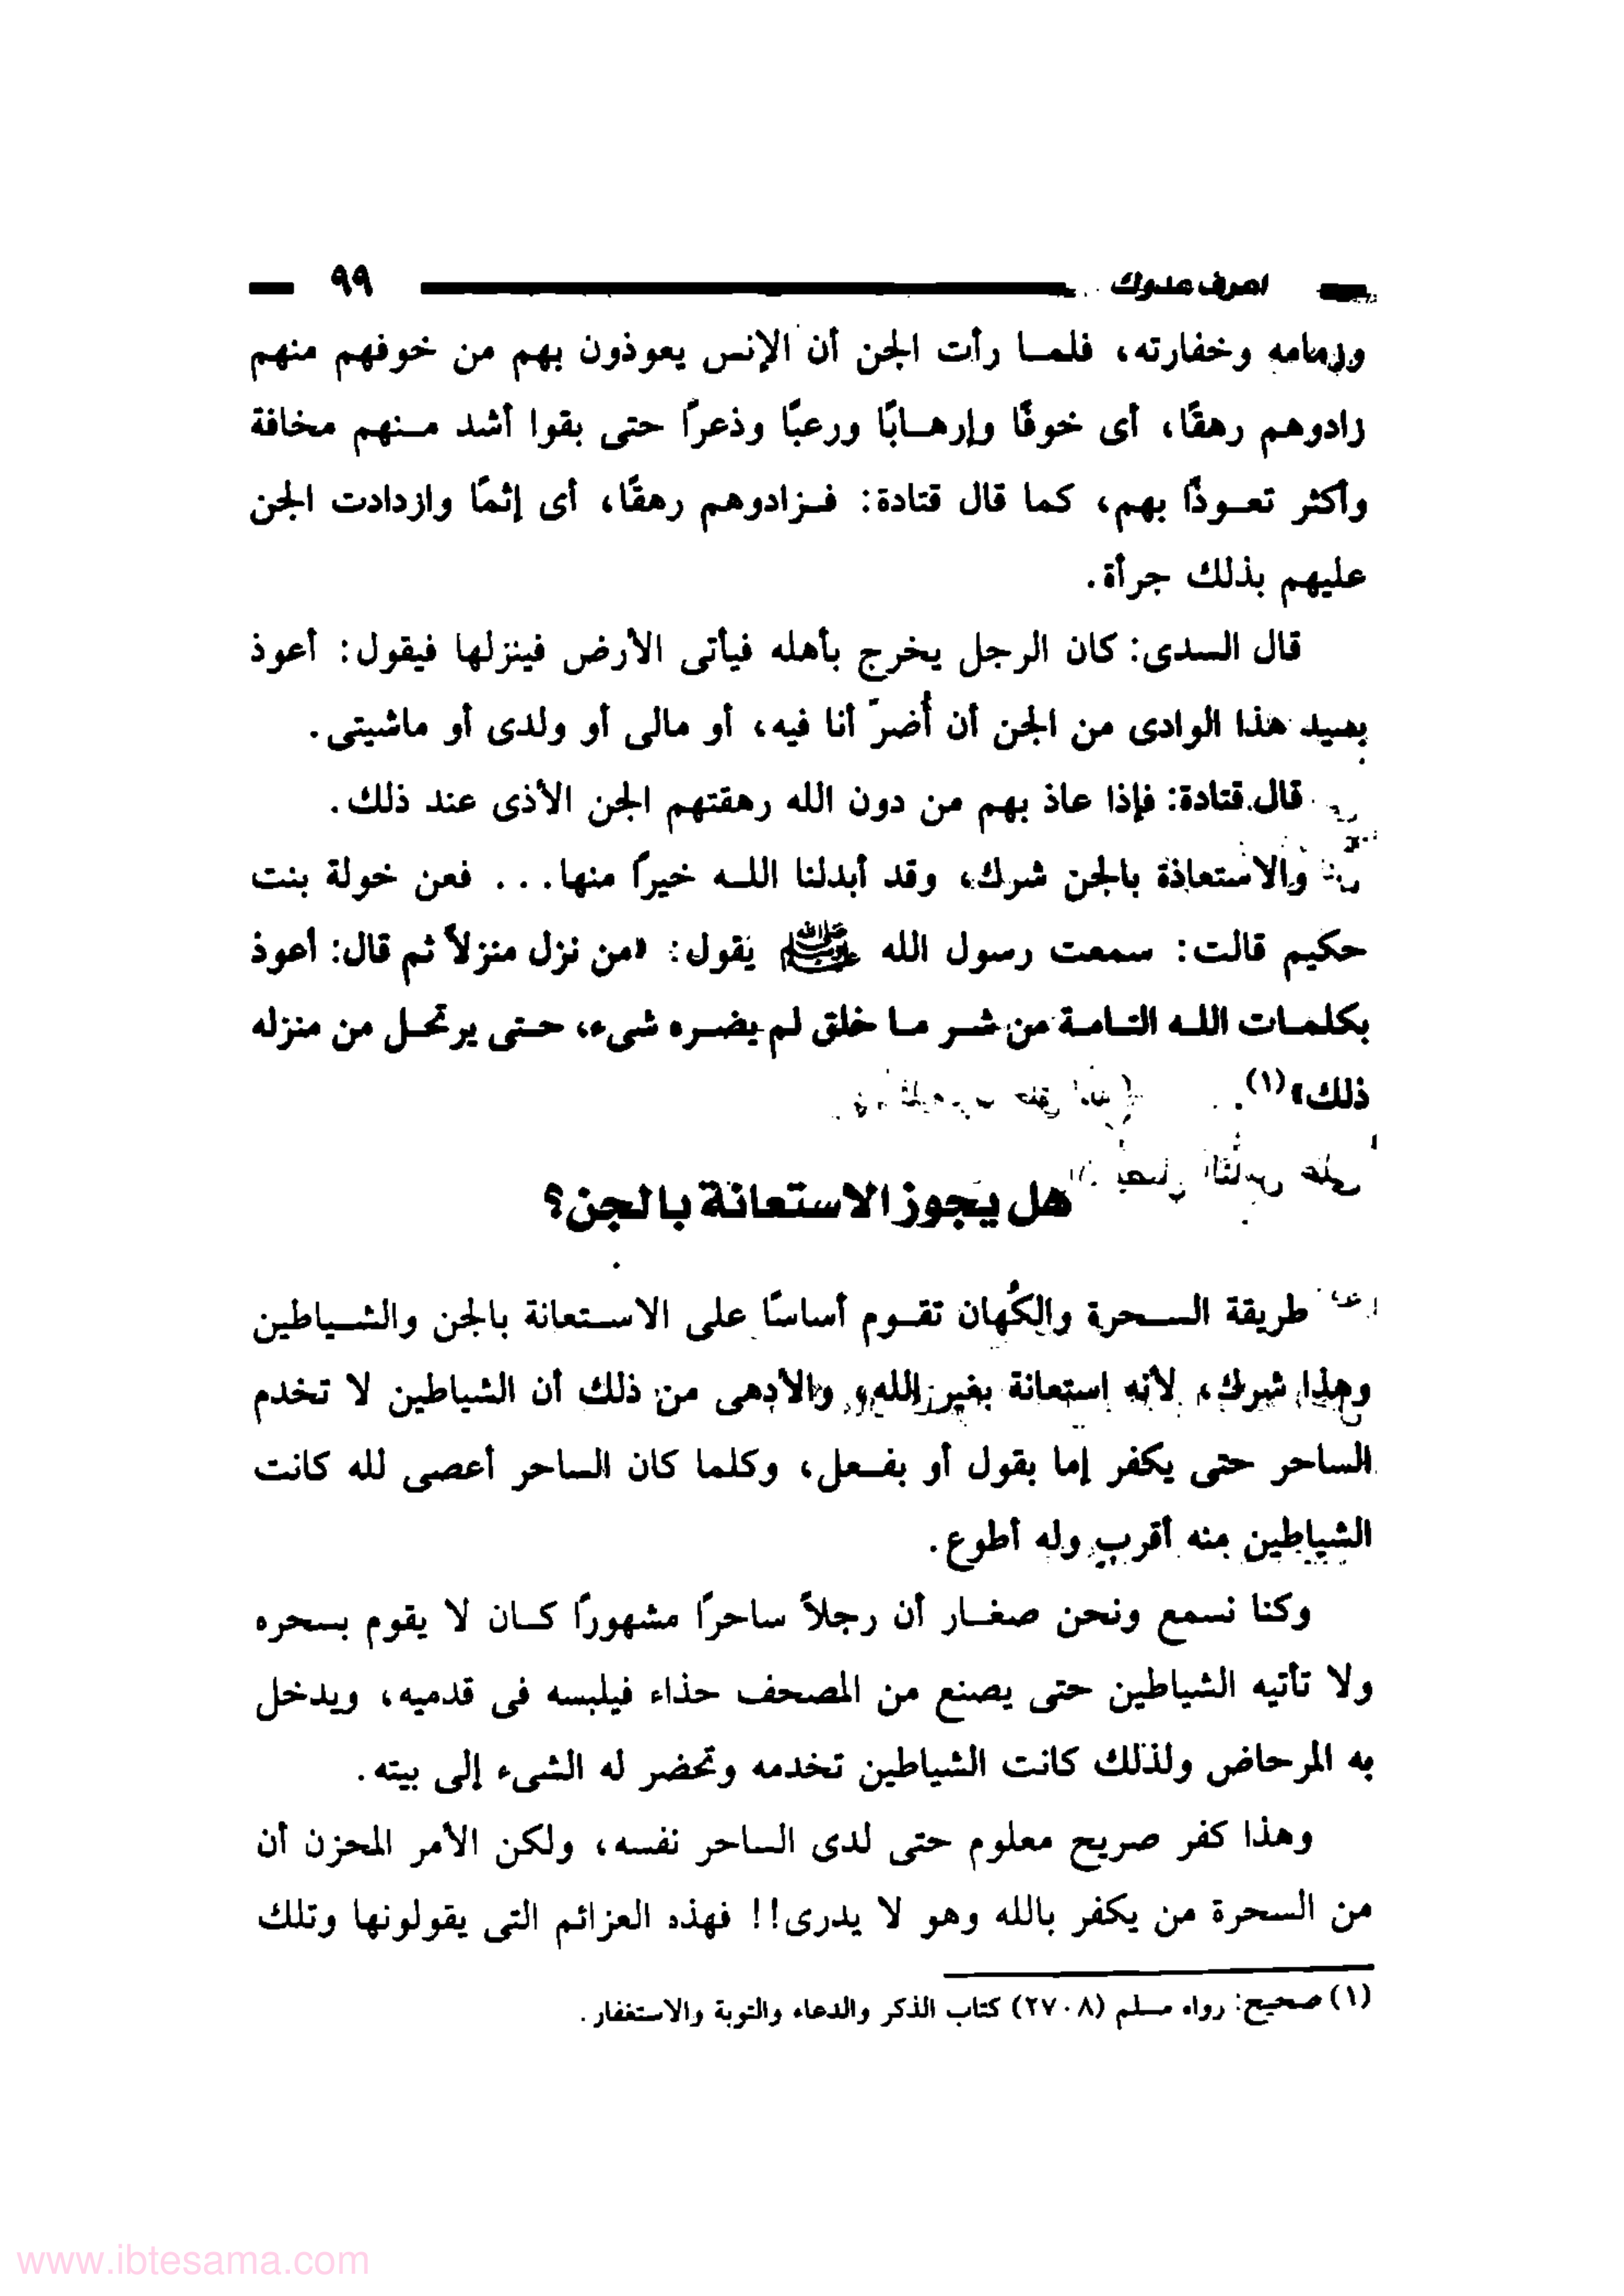 اعرف عدوك ٩٩
وزمامه وخفارته، فلمـا رأت الجن أن الإنس يعوذون بهم من خوفهم منهم
زادوهم رهقًا، أى خوفًا وإرهـابًا ورعبًا وذعرًا حتى بقوا أشد مـنهم مخافة
وأكثر تعـوذًا بهم، كما قال قتادة: فـزادوهم رهقًا، أى إثمًا وازدادت الجن
عليهم بذلك جرأة.
قال السدى: كان الرجل يخرج بأهله فيأتى الأرض فينزلها فيقول: أعوذ
بسيد هذا الوادى من الجن أن أُضرّ أنا فيه، أو مالى أو ولدى أو ماشيتى.
قال قتادة: فإذا عاذ بهم من دون الله رهقتهم الجن الأذى عند ذلك.
والاستعاذة بالجن شرك، وقد أبدلنا اللـه خيرًا منها... فعن خولة بنت
حكيم قالت: سمعت رسول الله ﷺ يقول: «من نزل منزلاً ثم قال: أعوذ
بكلمـات اللـه التـامـة من شـر مـا خلق لم يضـره شىء، حـتى يرتحـل من منزله
ذلك»(١).
هل يجوز الاستعانة بالجن؟
طريقة السـحرة والكُهان تقـوم أساسًا على الاسـتعانة بالجن والشـياطين
وهذا شرك، لأنه استعانة بغير الله، والأدهى من ذلك أن الشياطين لا تخدم
الساحر حتى يكفر إما بقول أو بفـعل، وكلما كان الساحر أعصى لله كانت
الشياطين منه أقرب وله أطوع.
وكنا نسمع ونحن صغـار أن رجلاً ساحرًا مشهورًا كـان لا يقوم بسحره
ولا تأتيه الشياطين حتى يصنع من المصحف حذاء فيلبسه فى قدميه، ويدخل
به المرحاض ولذلك كانت الشياطين تخدمه وتحضر له الشىء إلى بيته.
وهذا كفر صريح معلوم حتى لدى الساحر نفسه، ولكن الأمر المحزن أن
من السحرة من يكفر بالله وهو لا يدرى!! فهذه العزائم التى يقولونها وتلك
(١) صحيح: رواه مسلم (٢٧٠٨) كتاب الذكر والدعاء والتوبة والاستغفار.
www.ibtesama.com